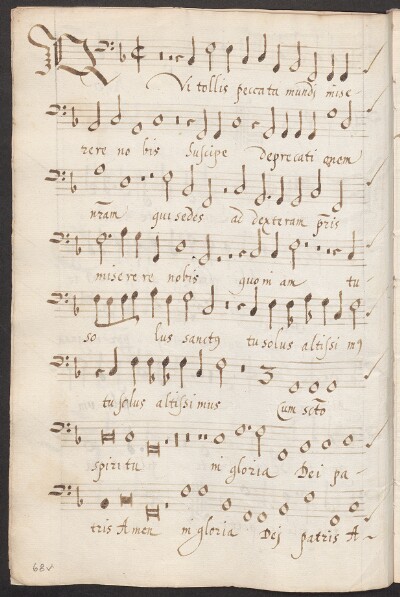 Qvi tollis peccata mundi mise-
rere no bis Suscipe deprecati onem
nr̄am qui sedes ad dexteram pr̄is
misere re nobis quoni am tu-
so lus sanctꝰ tu solus altissi mꝰ
tu solus altissi mus Cum scto
spiritu in gloria Dei pa-
tris Amen in gloria Dei patris A-
68v